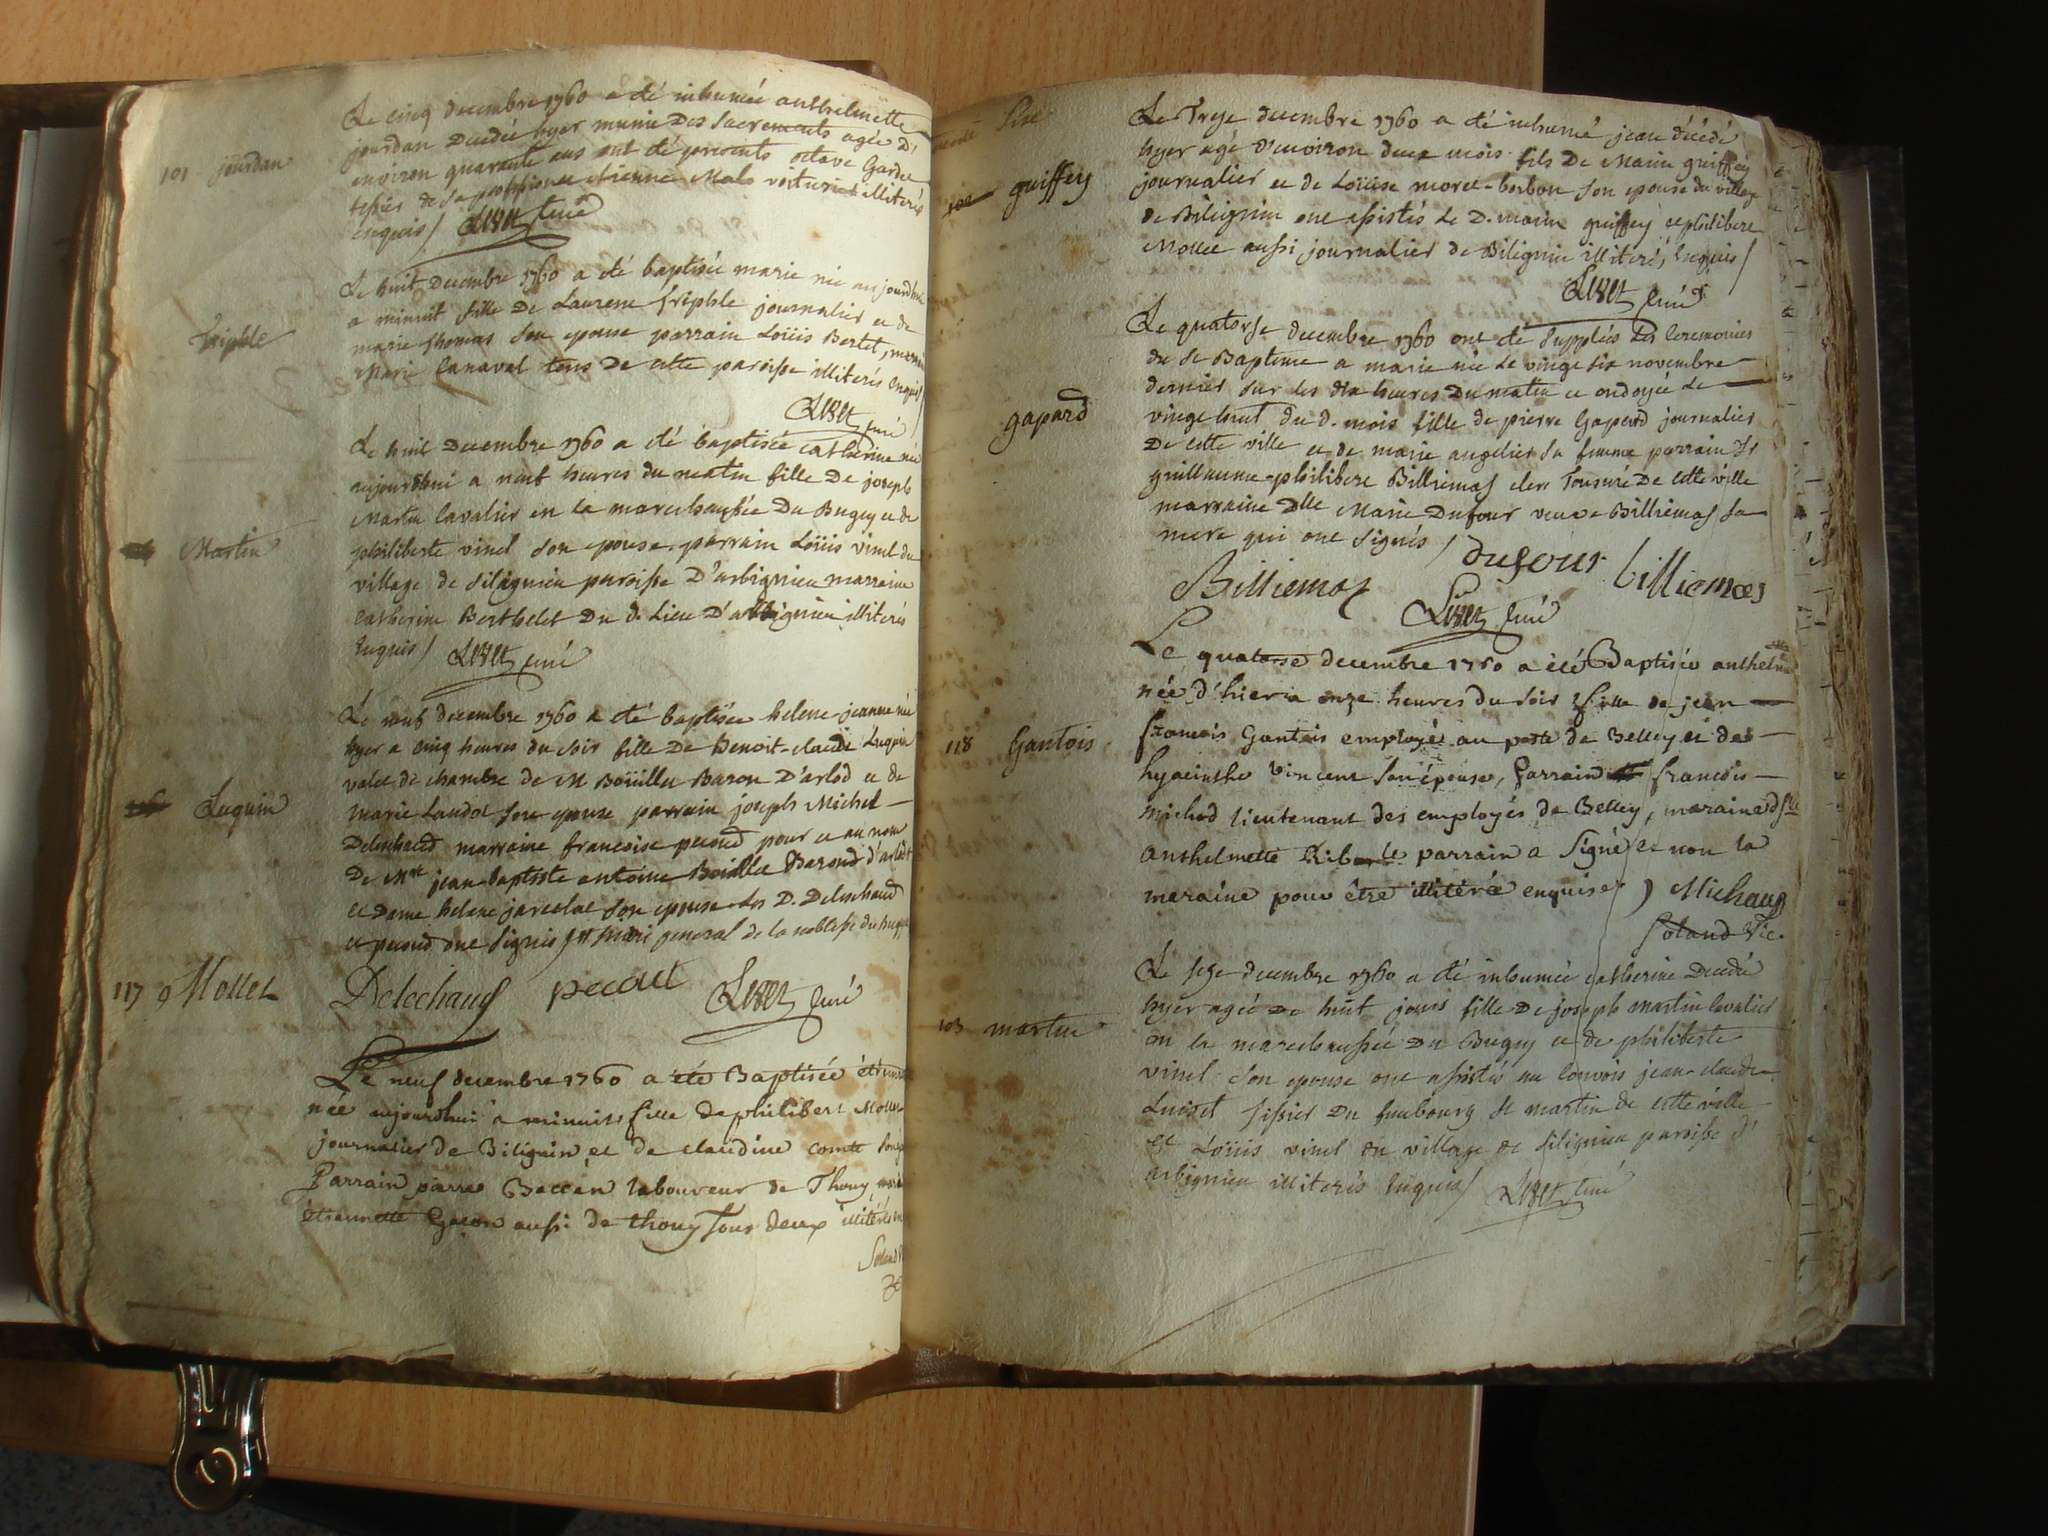 Le cinq decembre 1760 a été inhumée anthelmette
101 jourdan
jourdan decedée hyer munie des sacrements agée d'
environ quarante ans ont été presents octave Garde
tessier de sa profession etienne Malo voiturier illiterés
enquis / Livet curé
Le huit decembre 1760 a été baptisée marie née aujourdhui
a minuit fille de Laurent triphle journalier et de
triphle
marie thomas son epouse parrain Loüis Bertet, marraine
Marie Canaval tous de cette paroisse illiterés enquis /
Livet curé
Le huit decembre 1760 a été baptisée catherine née
aujourdhui a neuf heures du matin fille de joseph
Martin
Martin Cavalier en la marechaussée du Bugey et de
philiberte vinel son epouse parrain Loüis vinel du
village de silignieu paroisse d'arbignieu marraine
catherine Berthelet du d. Lieu d'arbignieu illiterés
enquis / Livet curé
Le neuf decembre 1760 a été baptisée helene-jeanne née
hyer a cinq heures du soir fille de Benoit-claude Luquin
valet de chambre de M Boüillet Baron d'arlod et de
Luquin
marie Landot son epouse parrain joseph Michel
Delechaud marraine francoise pecoud pour et au nom
de Mre jean-baptiste antoine Boüillet Baron d'arlod
et dame helene son epouse les D. Delechaud
et pecoud ont signés general de la noblesse du Bugey
117 Mollet
Delechaud pecout Livet curé
Le neuf decembre 1760 a été Baptisée
née aujourdhui a minuit fille de philibert Mollet
journalier de Biliguin et de claudine comte
Parrain pierre Beccen laboureur de Thouy
etiennette Gacon aussi de thouy tous deux illitérés
Soland
Le Treze decembre 1760 a été inhumé jean décédé
102 guiffey
hyer agé d'environ deux mois fils de Marin guiffey
journalier et de Loüise moret-borbon son epouse du village
de Biliguin ont assistés le D. marin guiffey et philibere
Mollet aussi journalier de Biliguin illiterés enquis /
Livet curé
Le quatorse decembre 1760 ont été supplées les ceremonies
du st Bapteme a marie née le vingt six novembre
dernier sur les dix heures du matin et ondoyée le
gapard
vingt huit du d. mois fille de pierre Gapard journalier
de cette ville et de marie angelier sa femme parrain sr
guillaume-philibere Billiemas clerc Tonsuré de cette ville
marraine dlle Marie Dufour veuve Billiemas sa
mere qui ont signés / dufour billiemas
Billiemas Livet curé
Le quatorse decembre 1760 a été Baptisée
née d'hier a onze heures du soir fille de jean
118 Gantois
francois Gantois employé au poste de Belley et de
hyacinthe vincent son épouse, Parrain francois
michod lieutenant des employés de Belley, maraine
anthelmette le parrain a signé et non la
maraine pour être illitérée enquise / Michaud
Soland Vic.
Le seze decembre 1760 a été inhumée catherine decedée
hyer agée de huit jours fille de joseph martin Cavalier
103 martin
en la marechaussée du Bugey et de philiberte
vinel son epouse ont assistés au convois jean-claude
Luizet tissier du faubourg st martin de cette ville
et Loüis vinel du village de silignieu paroisse d'
arbignieu illiterés enquis / Livet curé